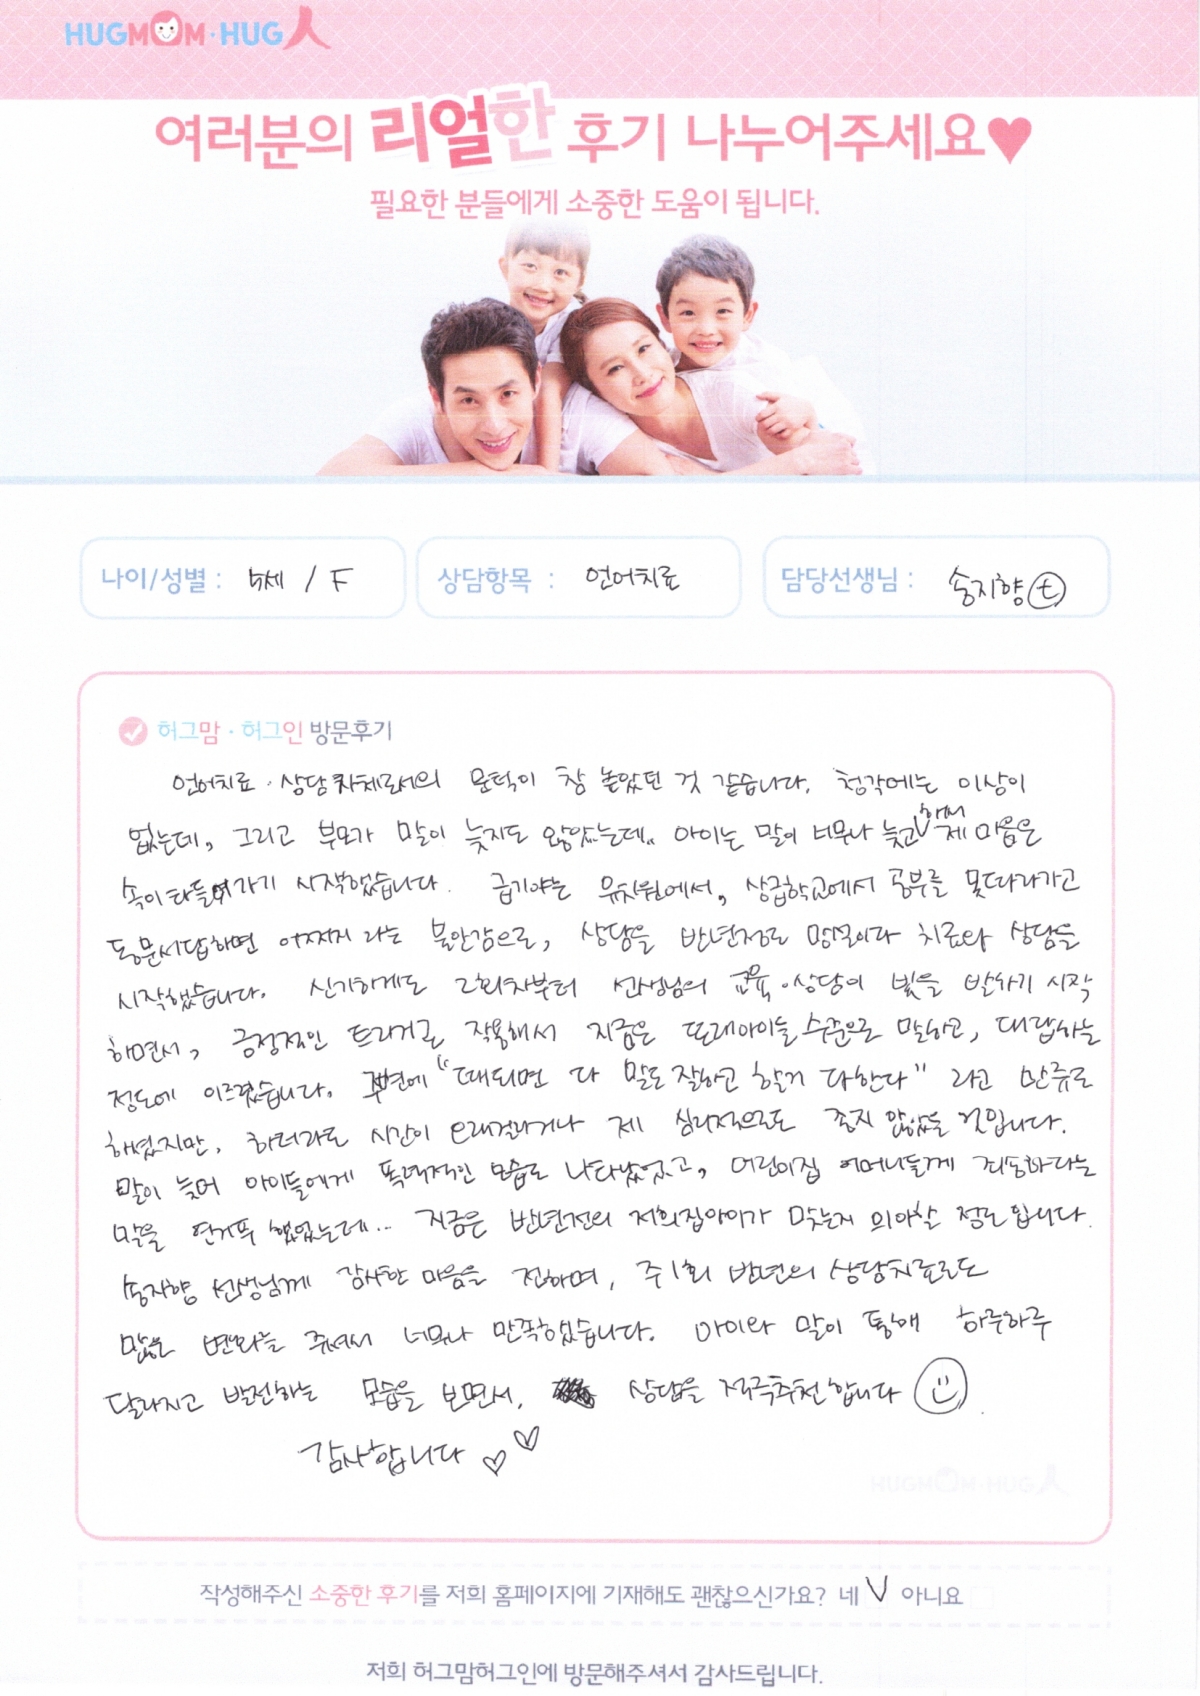 HUGMOM·HUG人
여러분의 리얼한 후기 나누어주세요♥
필요한 분들에게 소중한 도움이 됩니다.
나이/성별 : 5세 / F
상담항목 : 언어치료
담당선생님 : 송지향 ⓣ
허그맘·허그인 방문후기
언어치료·상담 자체로서의 문턱이 참 높았던 것 같습니다. 청각에는 이상이
없는데, 그리고 부모가 말이 늦지도 않았는데.. 아이는 말이 너무나 늦고 해서 제 마음은
속이 타들어가기 시작했습니다. 급기야는 유치원에서, 상급학교에서 공부를 못따라가고
동문서답하면 어쩌지 라는 불안감으로, 상담을 반년정도 명목이라 치료와 상담을
시작했습니다. 신기하게도 2회차부터 선생님의 교육·상담이 빛을 발하기 시작
하면서, 긍정적인 트리거로 작용해서 지금은 또래아이들 수준으로 말하고, 대답하는
정도에 이르렀습니다. 주변에 "때되면 다 말도 잘하고 할거 다한다" 라고 만류로
해셨지만, 하더라도 시간이 오래걸리거나 제 심리적으로도 좋지 않았을 것입니다.
말이 늦어 아이들에게 폭력적인 모습도 나타났었고, 어린이집 어머니들께 죄송하다는
말을 연거푸 했었는데... 지금은 반년전의 저희집아이가 맞는지 의아할 정도입니다.
송지향 선생님께 감사한 마음을 전하며, 주1회 반년의 상담치료로도
많은 변화를 주셔서 너무나 만족하였습니다. 아이와 말이 통해 하루하루
달라지고 발전하는 모습을 보면서, 상담을 적극추천합니다
감사합니다 ♡♡
작성해주신 소중한 후기를 저희 홈페이지에 기재해도 괜찮으신가요? 네 V 아니요 □
저희 허그맘허그인에 방문해주셔서 감사드립니다.